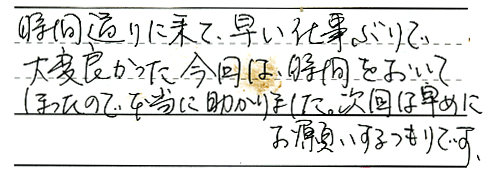 時間通りに来て、早い仕事ぶりで
大変良かった今回は、時間をおいて
しまったので本当に助かりました。次回は早めに
お願いするつもりです、